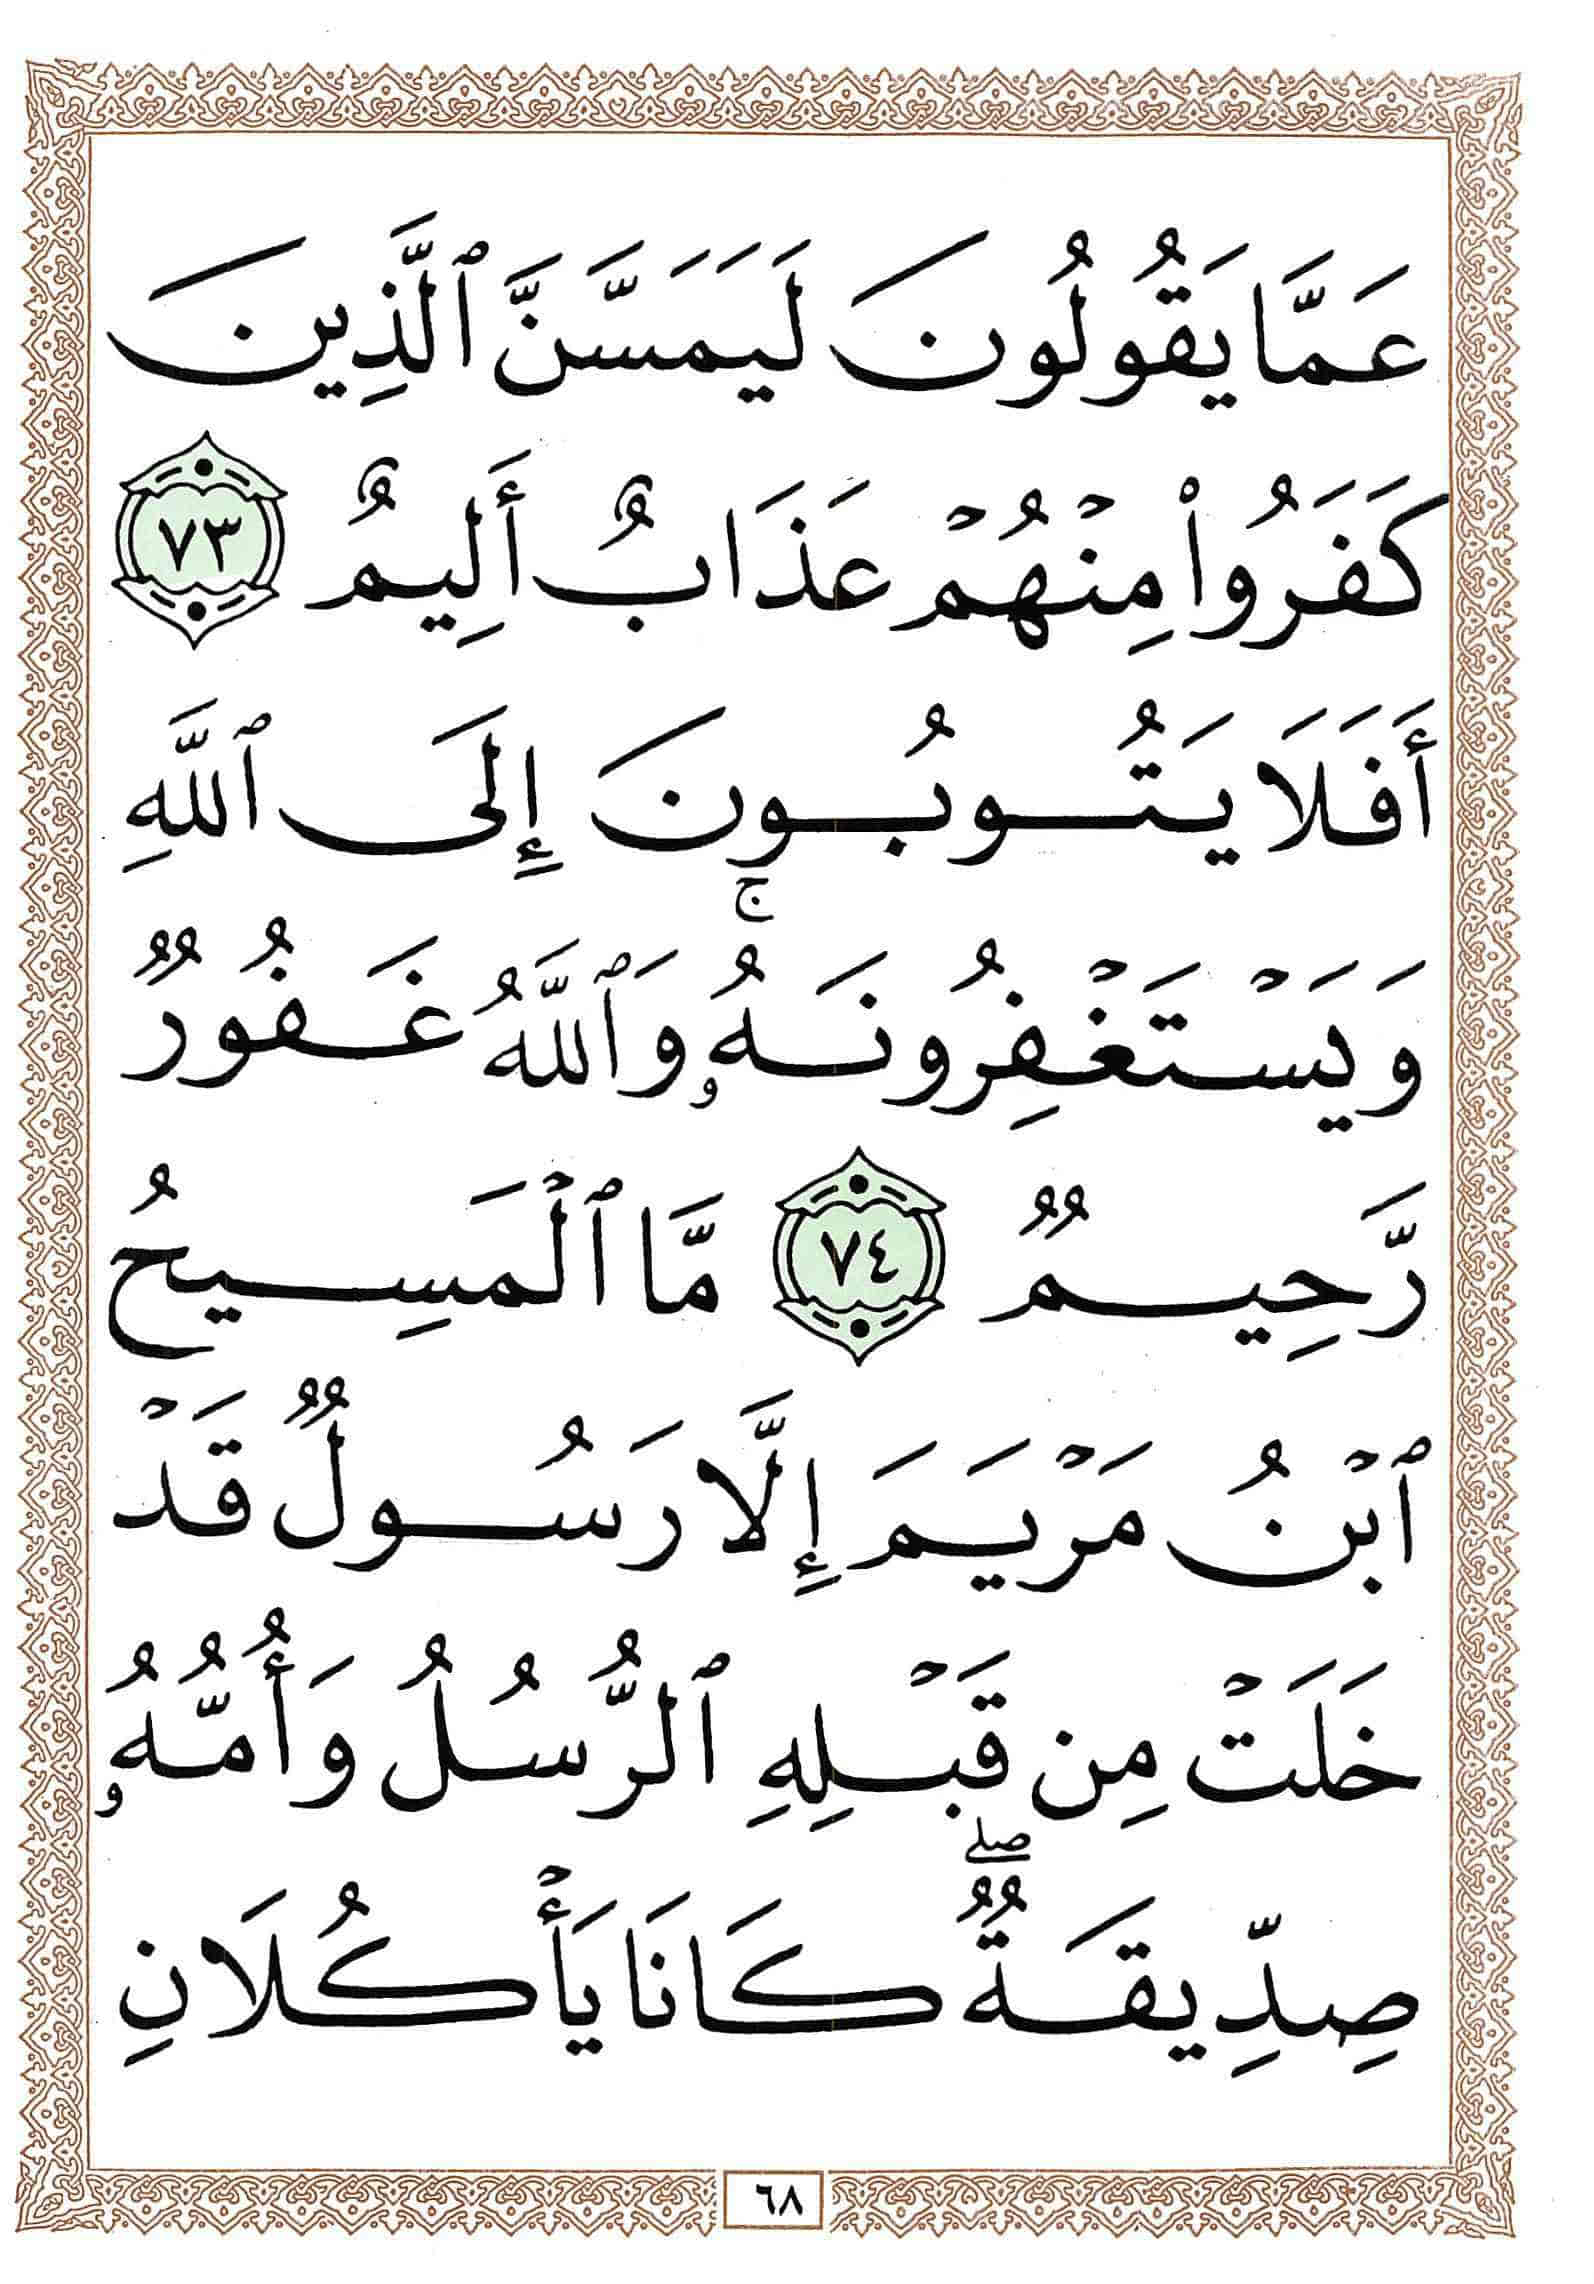 عَمَّا يَقُولُونَ لَيَمَسَّنَّ ٱلَّذِينَ
كَفَرُوا۟ مِنْهُمْ عَذَابٌ أَلِيمٌ ٧٣
أَفَلَا يَتُوبُونَ إِلَى ٱللَّهِ
وَيَسْتَغْفِرُونَهُۥ ۚ وَٱللَّهُ غَفُورٌ
رَّحِيمٌ ٧٤ مَّا ٱلْمَسِيحُ
ٱبْنُ مَرْيَمَ إِلَّا رَسُولٌ قَدْ
خَلَتْ مِن قَبْلِهِ ٱلرُّسُلُ وَأُمُّهُۥ
صِدِّيقَةٌ ۖ كَانَا يَأْكُلَانِ
٦٨